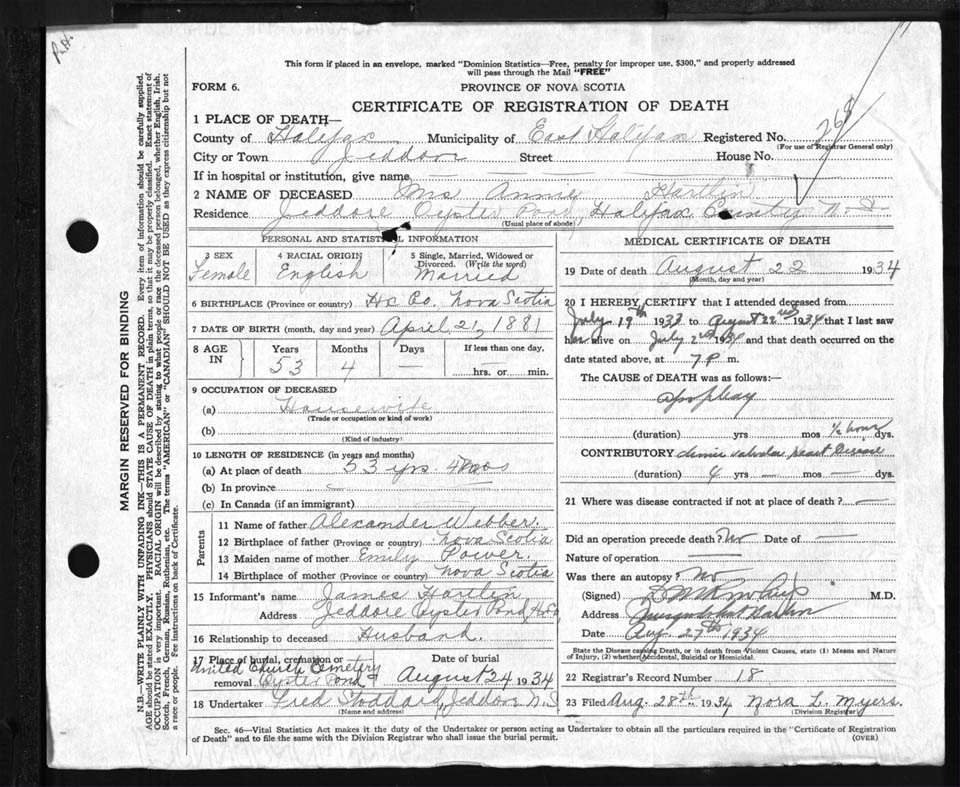 R.H.
This form if placed in an envelope, marked "Dominion Statistics—Free, penalty for improper use, $300," and properly addressed
will pass through the Mail "FREE"
FORM 6.
PROVINCE OF NOVA SCOTIA
CERTIFICATE OF REGISTRATION OF DEATH
1 PLACE OF DEATH—
County of Halifax Municipality of East Halifax Registered No. 268
(For use of Registrar General only)
City or Town Jeddore Street House No.
If in hospital or institution, give name
2 NAME OF DECEASED Mrs Annie Hartlin
Residence Jeddore Oyster Pond, Halifax County N.S
(Usual place of abode)
PERSONAL AND STATISTICAL INFORMATION
3 SEX 4 RACIAL ORIGIN 5 Single, Married, Widowed or
Divorced. (Write the word)
Female English Married
6 BIRTHPLACE (Province or country) Hx Co. Nova Scotia
7 DATE OF BIRTH (month, day and year) April 21, 1881
8 AGE IN Years Months Days If less than one day,
53 4 — hrs. or min.
9 OCCUPATION OF DECEASED
(a) Housewife
(Trade or occupation or kind of work)
(b)
(Kind of industry)
10 LENGTH OF RESIDENCE (in years and months)
(a) At place of death 53 yrs. 4 mos
(b) In province —
(c) In Canada (if an immigrant)
Parents
11 Name of father Alexander Webber.
12 Birthplace of father (Province or country) Nova Scotia
13 Maiden name of mother Emily Power.
14 Birthplace of mother (Province or country) Nova Scotia
15 Informant's name James Hartlin
Address Jeddore Oyster Pond, Hx Co.
16 Relationship to deceased Husband.
17 Place of burial, cremation or Date of burial
United Church Cemetery
removal Oyster Pond August 24 1934
18 Undertaker Fred Stoddard, Jeddore N.S
(Name and address)
MEDICAL CERTIFICATE OF DEATH
19 Date of death August 22 1934
(Month, day and year)
20 I HEREBY CERTIFY that I attended deceased from
July 19th 1933 to August 22nd 1934 that I last saw
her alive on July 2nd 1934 and that death occurred on the
date stated above, at 7 P m.
The CAUSE of DEATH was as follows:—
Apoplexy
(duration) yrs mos 1/2 hour dys.
CONTRIBUTORY chronic valvular heart disease
(duration) 4 yrs — mos — dys.
21 Where was disease contracted if not at place of death? —
Did an operation precede death? No Date of —
Nature of operation —
Was there an autopsy? No
(Signed) M.D.
Address Musquodoboit Harbor
Date Aug 27th 1934
State the Disease causing Death, or in death from Violent Causes, state (1) Means and Nature
of Injury, (2) whether Accidental, Suicidal or Homicidal.
22 Registrar's Record Number 18
23 Filed Aug. 28th 1934 Nora L. Myers.
(Division Registrar)
Sec. 46—Vital Statistics Act makes it the duty of the Undertaker or person acting as Undertaker to obtain all the particulars required in the "Certificate of Registration
of Death" and to file the same with the Division Registrar who shall issue the burial permit.
(OVER)
MARGIN RESERVED FOR BINDING
N.B.—WRITE PLAINLY WITH UNFADING INK—THIS IS A PERMANENT RECORD. Every item of information should be carefully supplied.
AGE should be stated EXACTLY. PHYSICIANS should STATE CAUSE OF DEATH in plain terms, so that it may be properly classified. Exact statement of
OCCUPATION is very important. RACIAL ORIGIN will be described by stating to what people or race the deceased person belonged, whether English, Irish,
Scotch, French, German, Russian, Ruthenian, etc. The terms "AMERICAN" or "CANADIAN" SHOULD NOT BE USED as they express citizenship but not
a race or people. Fee instructions on back of Certificate.